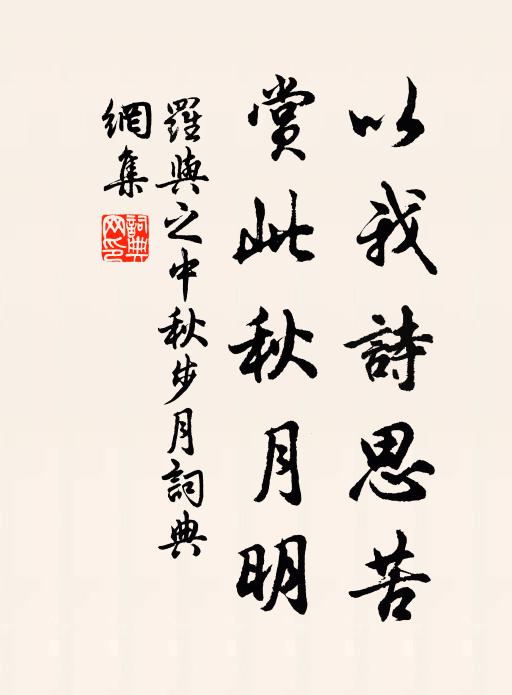 以我詩思苦
賞此秋月明
羅與之中秋步月詞典
網集
詞典網印